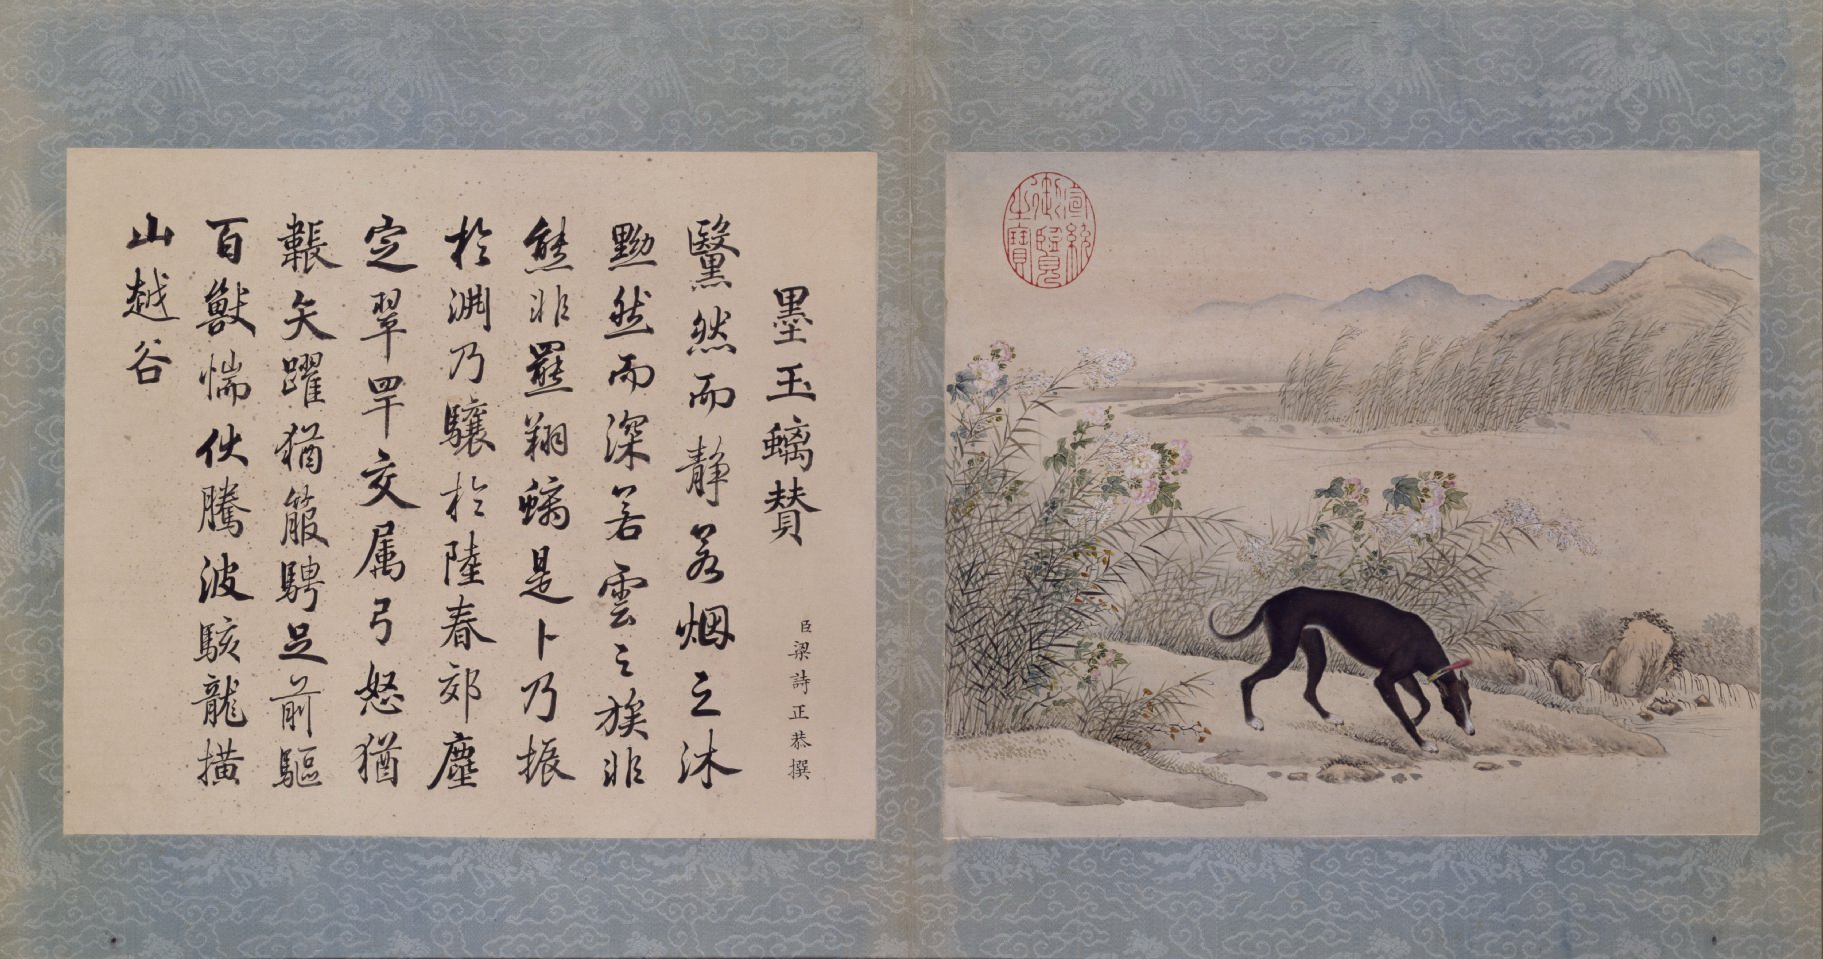 墨玉螭赞
臣梁詩正恭撰
黳然而静若烟之沐
黝然而深若雲之族非
熊非羆翔螭是卜乃振
於淵乃驤於陸春郊塵
定翠罕交属弓怒猶
韔矢躍猶箙騁足前驅
百獸惴伏騰波駭龍橫
山越谷
宣統
御覽
之寶